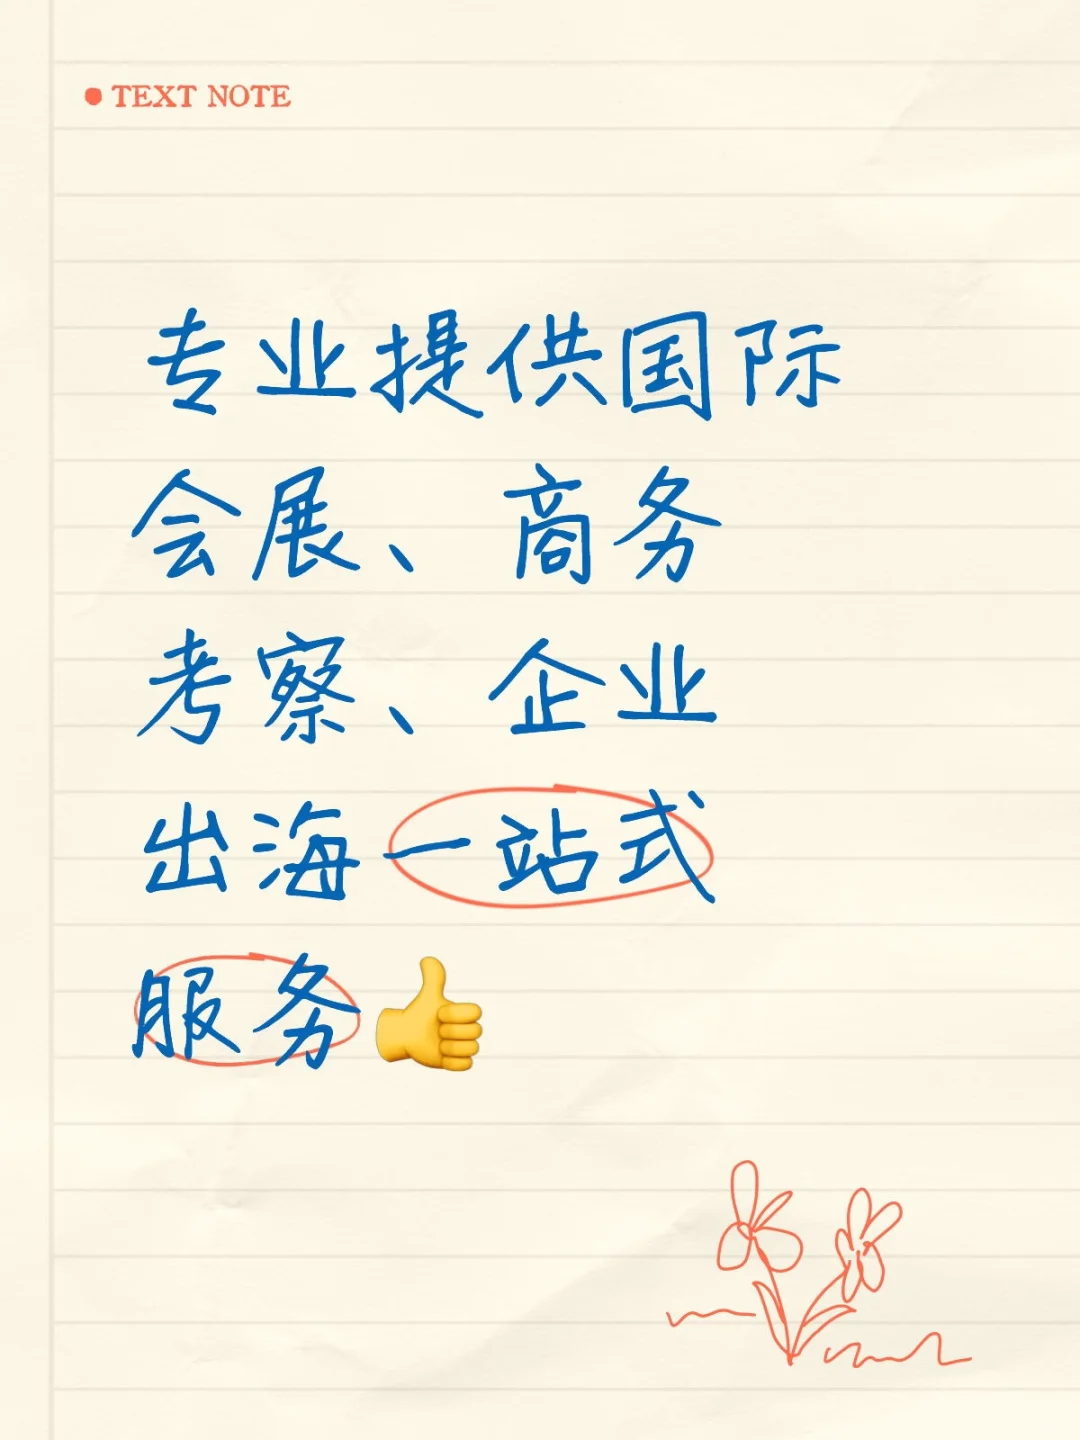 TEXT NOTE
专业提供国际
会展、商务
考察、企业
出海一站式
服务👍